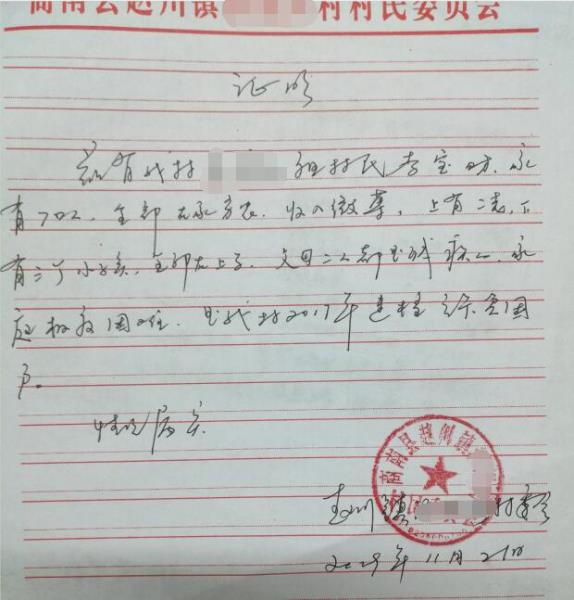 商南县赵川镇 村村民委员会
证明
兹有我村 组村民李宝 家
有7口人,全部在家务农,收入微薄,上有二老,下
有三个小孩,全部在上学,父母二人都是残疾人,家
庭极为困难,是我村2017年建档 贫困
户。
情况属实
商南县赵川镇
赵川镇 村委会
年11月21日